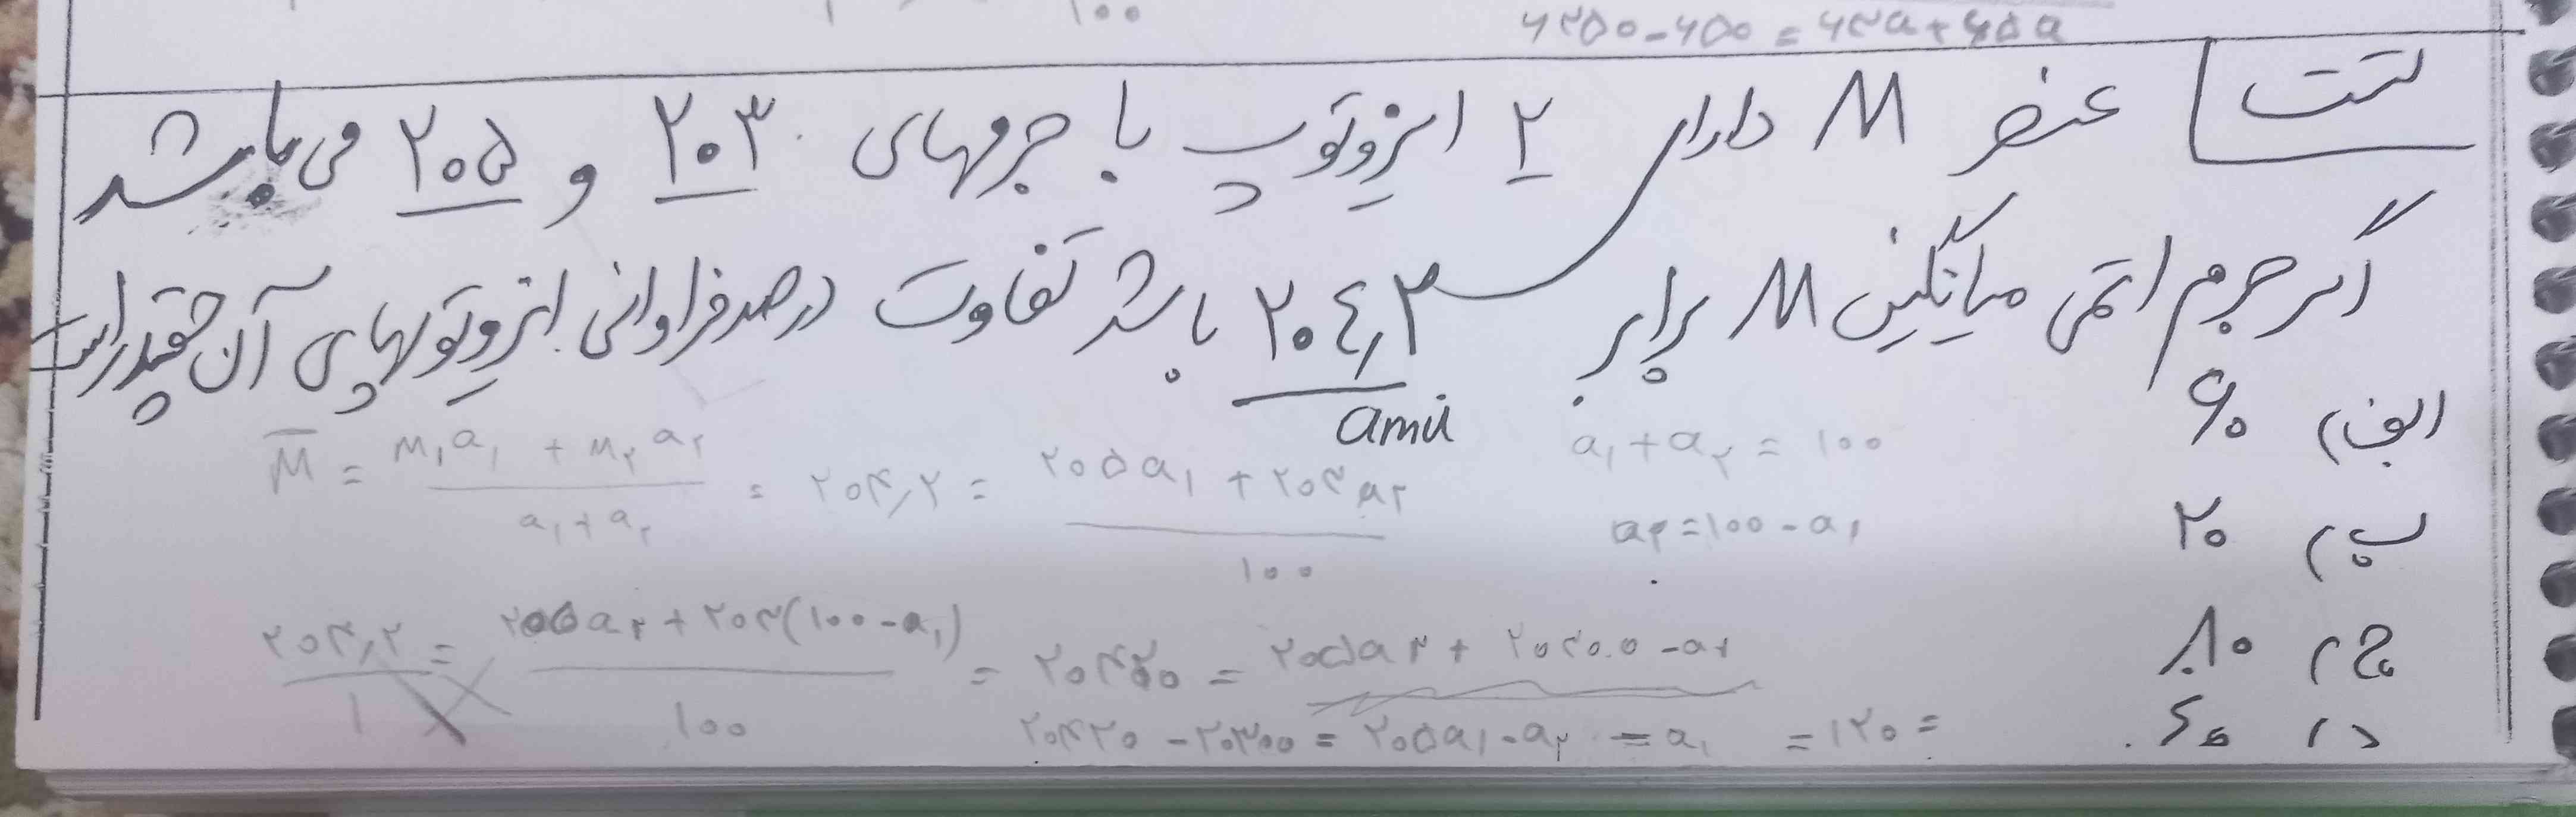 ۱۰۰ ۶۲۵۰ - ۶۵۰ = ۶۳a + ۶۵a
تست عنصر M دارای ۲ ایزوتوپ با جرمهای ۲۰۳ و ۲۰۵ می باشد
اگر جرم اتمی میانگین M برابر ۲۰۴٫۲ باشد تفاوت درصد فراوانی ایزوتوپهای آن چقدر است
amu
الف) ۶۰
ب) ۲۰
ج) ۸۰
د) ۴۰
a₁ + a₂ = ۱۰۰
a₂ = ۱۰۰ - a₁
M̄ = M₁a₁ + M₂a₂ / a₁ + a₂ = ۲۰۴٫۲ = ۲۰۵a₁ + ۲۰۳a₂ / ۱۰۰
۲۰۴٫۲ / ۱ = ۲۰۵a₂ + ۲۰۳(۱۰۰ - a₁) / ۱۰۰ = ۲۰۴۲۰ = ۲۰۵a₂ + ۲۰۳۰۰ - a₂
۲۰۴۲۰ - ۲۰۳۰۰ = ۲۰۵a₁ - a₂ = a₁ = ۱۲۰ =